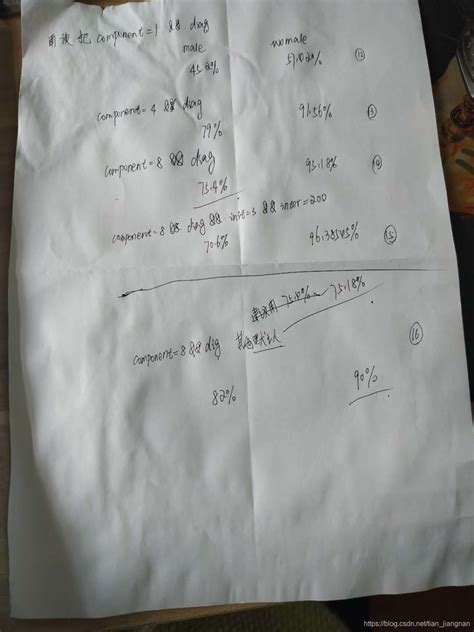 把 component=1 && diag
male    womale
45.2%    57.02% ⑫
component=4 && diag
79%    91.56% ⑬
component=8 && diag
75.4%    95.18% ⑭
component=8 && diag && init=3 && =200
70.6%    96.38545% ⑮
75.18%
component=8 && diag 其他默认 ⑯
82%    90%
https://blog.csdn.net/tian_jiangnan